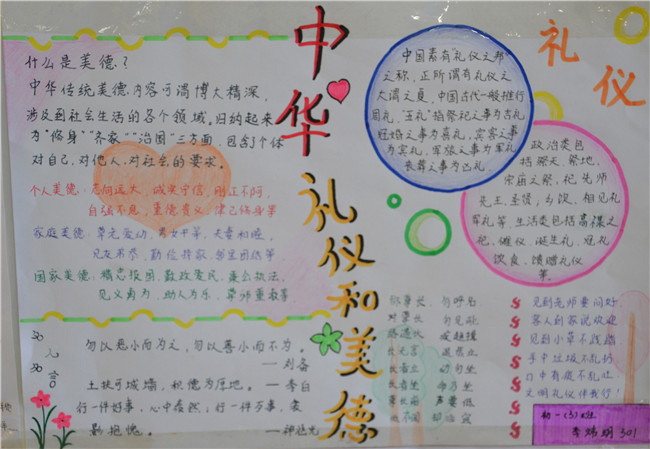 中华礼仪和美德
什么是美德?
中华传统美德内容可谓博大精深,
涉及到社会生活的各个领域,归纳起来
为“修身”“齐家”“治国”三方面,包含了个体
对自己,对他人,对社会的要求。
个人美德:志向远大,诚实守信,刚正不阿,
自强不息,重德贵义,律己修身等
家庭美德:尊老爱幼,男女平等,夫妻和睦,
勤俭持家,邻里团结等
国家美德:精忠报国,勤政爱民,廉公执法,
见义勇为,助人为乐,尊师重教等
名人名言
勿以恶小而为之,勿以善小而不为。
——刘备
土扶可城墙,积德为厚地。——李白
行一件好事,心中泰然;行一件歹事,衾
影抱愧。
礼仪
中国素有“礼仪之邦”
之称,正所谓有礼仪之
大谓之夏,中国古代一般推行
周礼,“五礼”指祭祀之事为吉礼
冠婚之事为嘉礼,宾客之事
为宾礼,军旅之事为军礼
丧葬之事为凶礼
政治类包
括祭天,祭地,
宗庙之祭,祀先师
先王,圣贤;乡饮、相见礼
军礼等。生活类包括高禖之
祀,傩仪,诞生礼,冠礼
饮食,馈赠礼仪
等。
称尊长 勿呼名
对尊长 勿见能
路遇长 疾趋揖
见到老师要问好
客人到家说欢迎
见到小草不践踏
手中垃圾不乱扔
口中有痰不乱吐
文明礼仪伴我行!
初一(3)班
301